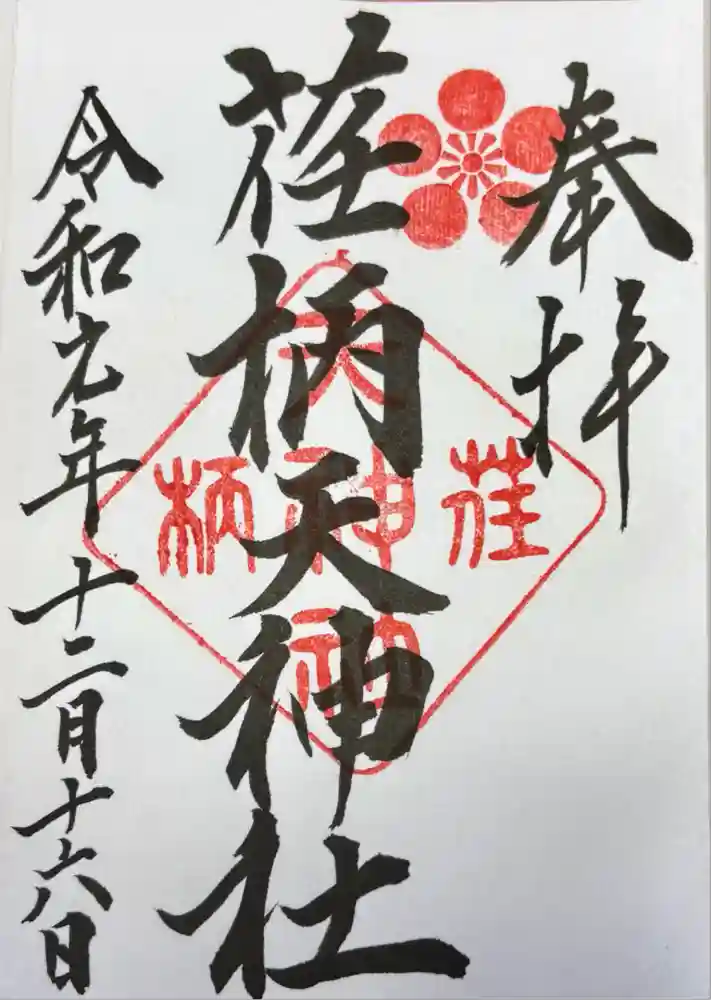 奉拝
荏柄天神社
令和元年十二月十六日
荏
天
神
柄
社